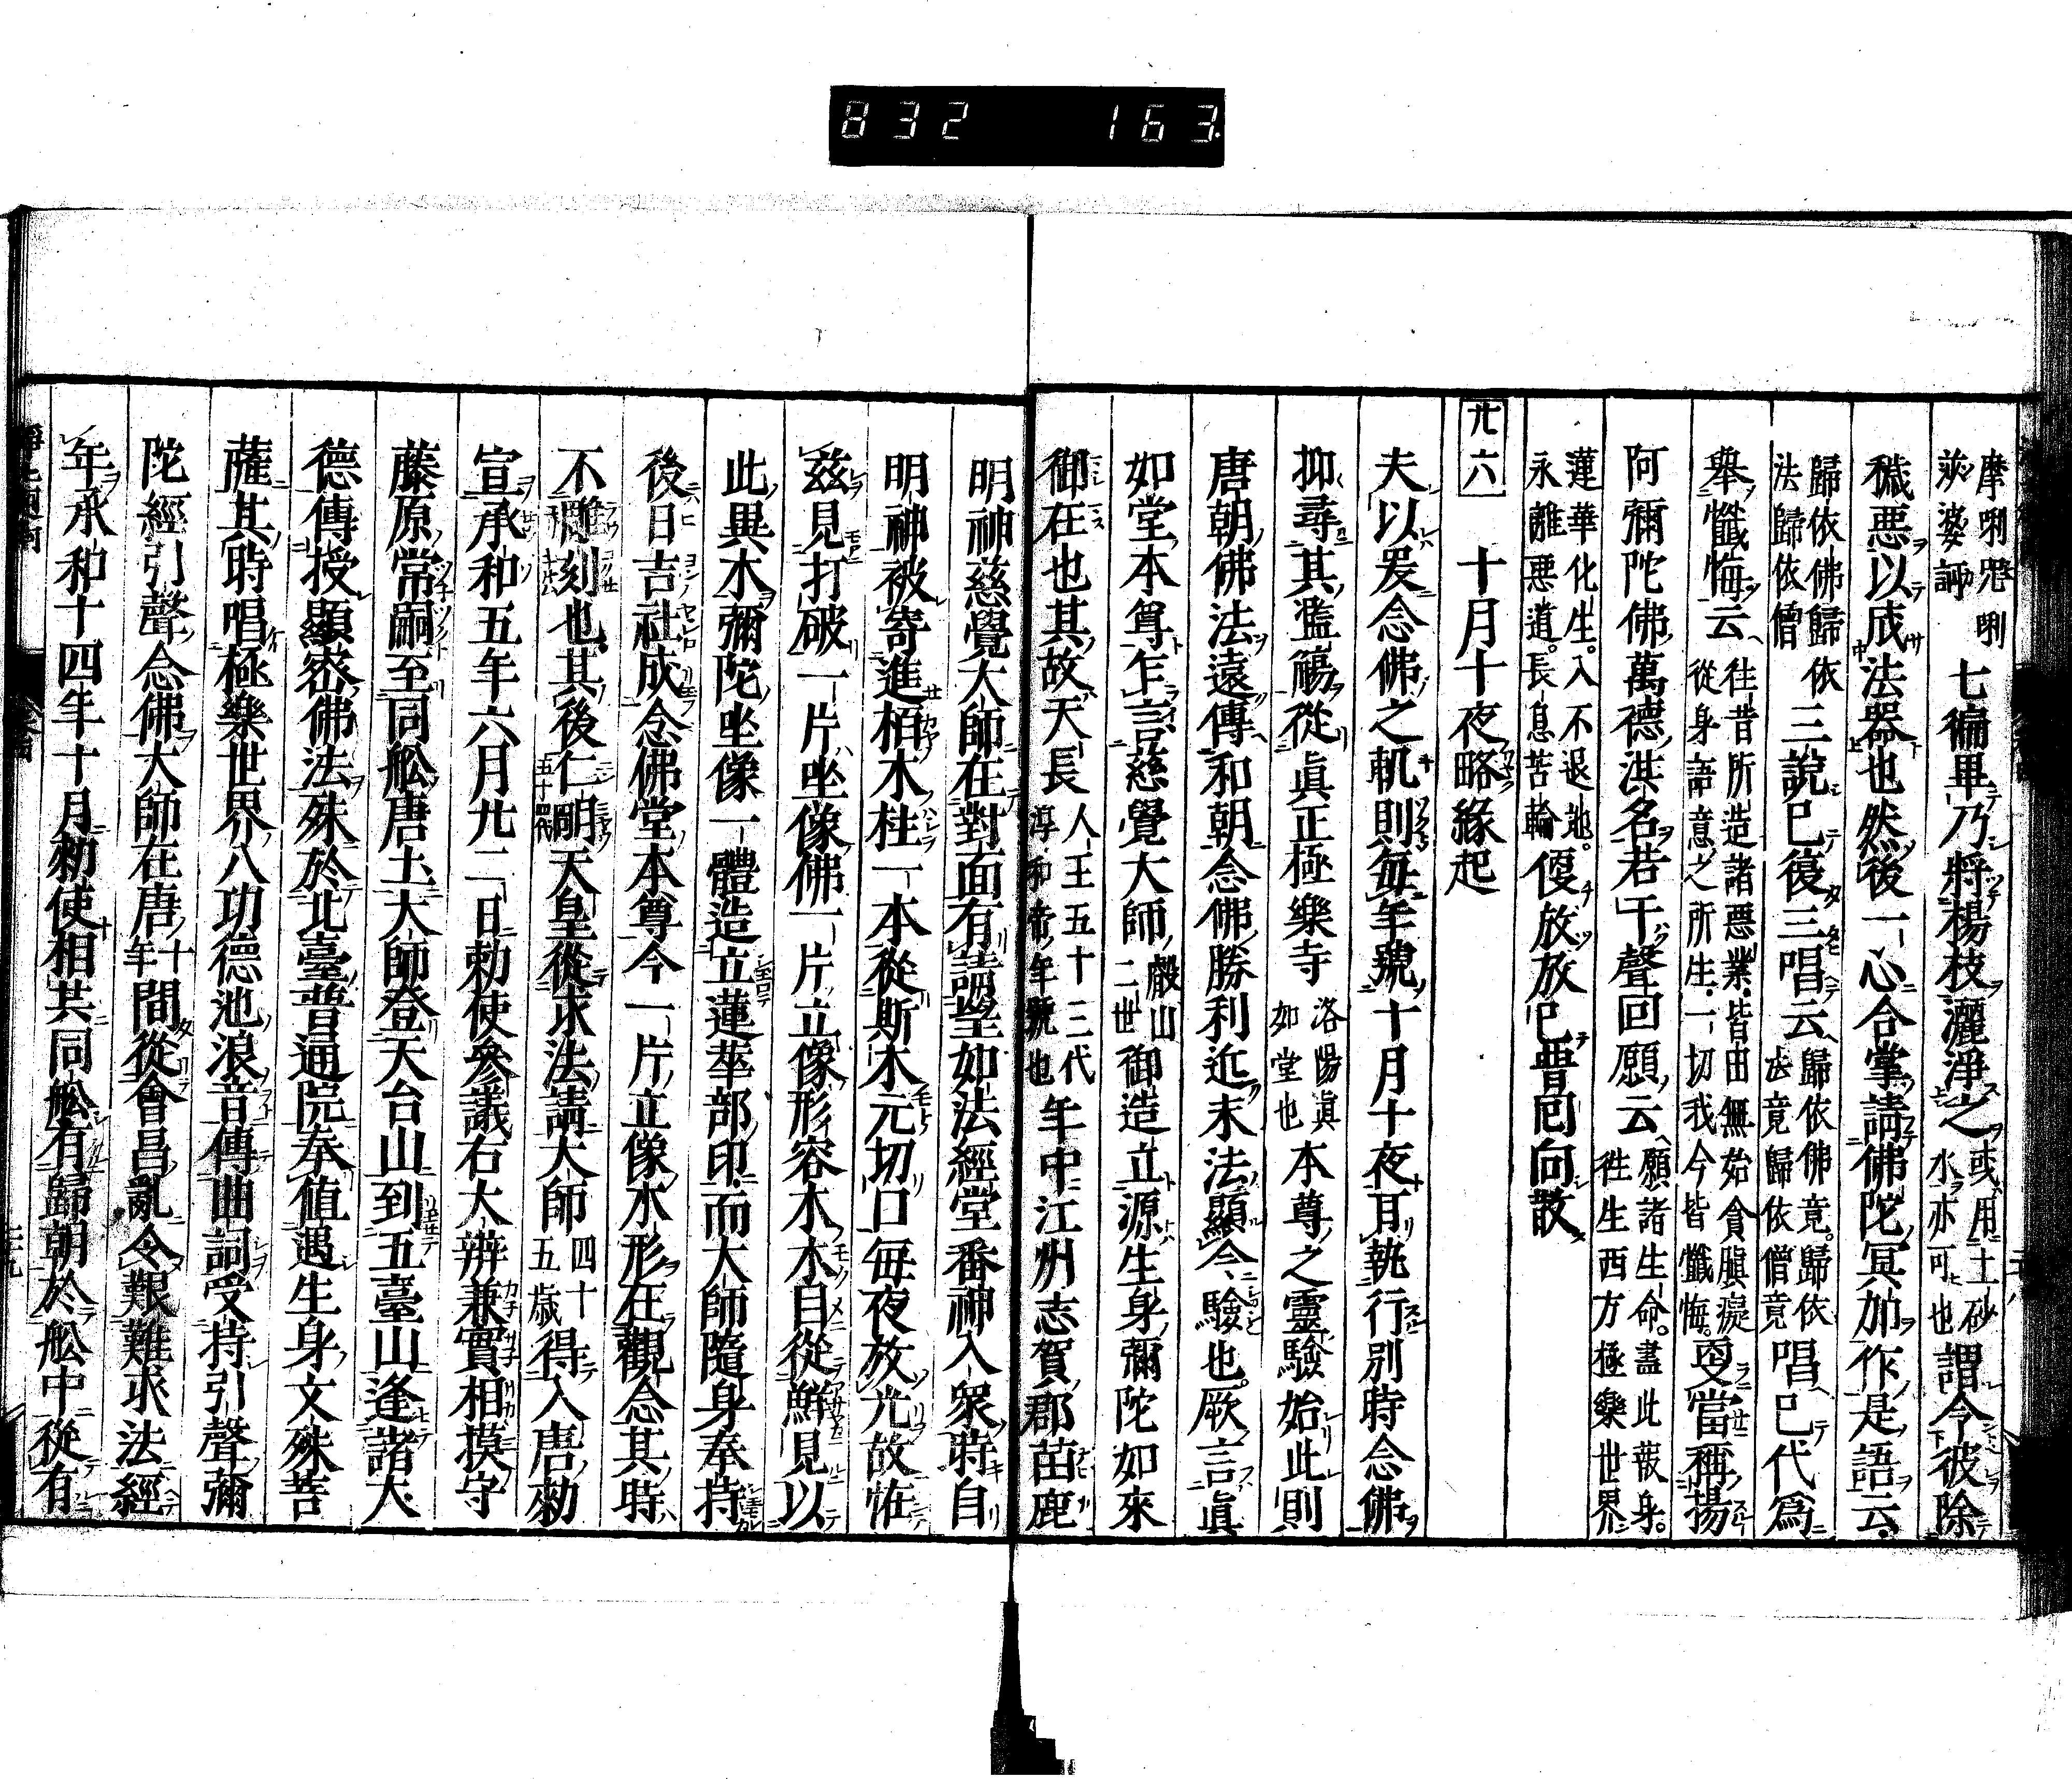 832 163
摩唎兕唎莎婆訶七徧畢乃將楊枝灑淨之或用土砂水亦可也謂今彼除
穢惡以成法器也然後一心合掌請佛陀冥加作是語云
歸依佛歸依法歸依僧三說已復三唱云歸依佛竟歸依法竟歸依僧竟唱已代爲
舉懺悔云往昔所造諸惡業皆由無始貪瞋癡從身語意之所生一切我今皆懺悔更當稱揚
阿彌陀佛萬德洪名若干聲回願云願諸生命盡此報身往生西方極樂世界
蓮華化生入不退地永離惡道長息苦輪復放放已晋囘向散
廿六 十月十夜略緣起
夫以爰念佛之軌則每年號十月十夜耳執行別時念佛
抑尋其濫觴從眞正極樂寺洛陽眞如堂也本尊之靈驗始此則
唐朝佛法遠傳和朝念佛勝利近末法顯今驗也厥言眞
如堂本尊乍言慈覺大師叡山二世御造立源生身彌陀如來
御在也其故天長人王五十三代淳和帝年號也年中江州志賀郡苗鹿
明神慈覺大師在對面有請堅如法經堂番神入衆時自
明神被寄進栢木柱一本從斯木元切口每夜放光故恠
茲見打破一片坐像佛一片立像形容木木自從鮮見以
此異木彌陀坐像一體造立蓮華部印而大師隨身奉持
後日吉社成念佛堂本尊今一片立像木形在觀念其時
不雕刻也其後仁明五十四代天皇從求法請大師四十五歲得入唐勅
宣承和五年六月廿二日勅使參議右大辨兼實相摸守
藤原常嗣至同舩唐土大師登天台山到五臺山逢諸大
德傳授顯密佛法殊於北臺普通院奉値遇生身文殊菩
薩其時唱極樂世界八功德池浪音傳曲詞受持引聲彌
陀經引聲念佛大師在唐十年間從會昌亂令艱難求法經
年承和十四年十月勅使相共同舩有歸朝於舩中從有